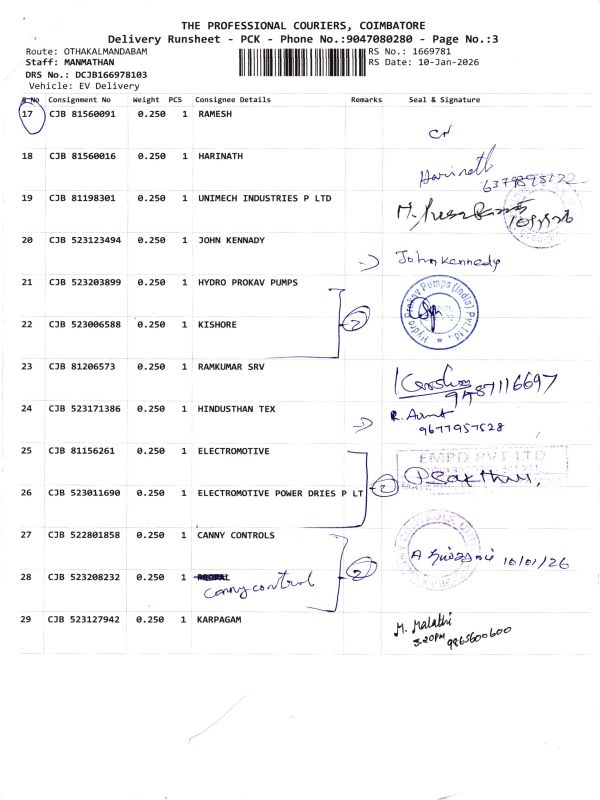 THE PROFESSIONAL COURIERS, COIMBATORE
Delivery Runsheet - PCK - Phone No.:9047080280 - Page No.:3
Route: OTHAKALMANDABAM
RS No.: 1669781
Staff: MANMATHAN
RS Date: 10-Jan-2026
DRS No.: DCJB166978103
Vehicle: EV Delivery
S No Consignment No Weight PCS Consignee Details Remarks Seal & Signature
17 CJB 81560091 0.250 1 RAMESH
18 CJB 81560016 0.250 1 HARINATH Harinath
6379895122
19 CJB 81198301 0.250 1 UNIMECH INDUSTRIES P LTD
20 CJB 523123494 0.250 1 JOHN KENNADY John Kennedy
21 CJB 523203899 0.250 1 HYDRO PROKAV PUMPS
Hydro Prokav Pumps (India) Pvt. Ltd.
22 CJB 523006588 0.250 1 KISHORE 2
23 CJB 81206573 0.250 1 RAMKUMAR SRV
9487116697
24 CJB 523171386 0.250 1 HINDUSTHAN TEX
9677957528
25 CJB 81156261 0.250 1 ELECTROMOTIVE
EMPD PVT LTD
26 CJB 523011690 0.250 1 ELECTROMOTIVE POWER DRIES P LT 2
27 CJB 522801858 0.250 1 CANNY CONTROLS
10/01/26
28 CJB 523208232 0.250 1 2
Canny control
29 CJB 523127942 0.250 1 KARPAGAM M. Malathi
3.20PM 9865600600